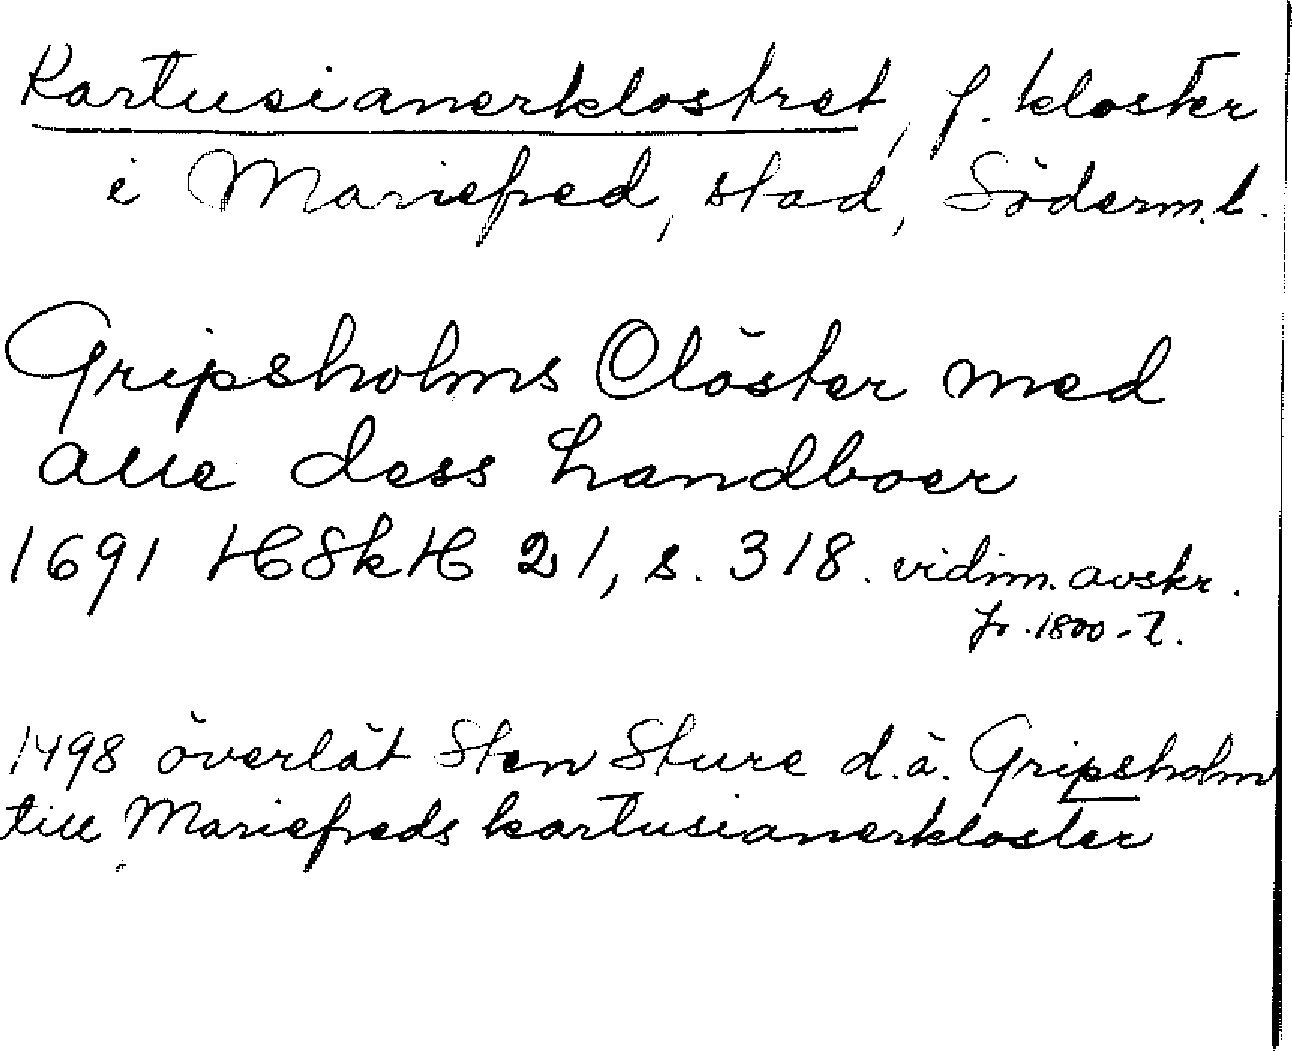 Kartusianerklostret, f. kloster
i Mariefred, stad, Söderm.l.
Gripsholms Clöster med
alle dess handboer
1691 HSkH 21, s. 318. vidim. avskr.
fr. 1800-t.
1498 överlät Sten Sture d.ä. Gripsholm
till Mariefreds kartusianerkloster